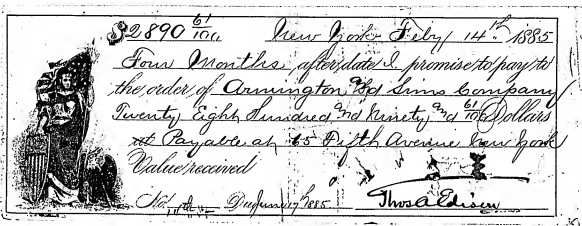 $2890 61/100 New York Feby 14th 1885
Four Months after date I promise to pay to
the order of Armington and Sims Company
Twenty Eight Hundred and Ninety and 61/100 Dollars
Payable at 65 Fifth Avenue New York
Value received
No. Due June 17th 1885 Thos A Edison